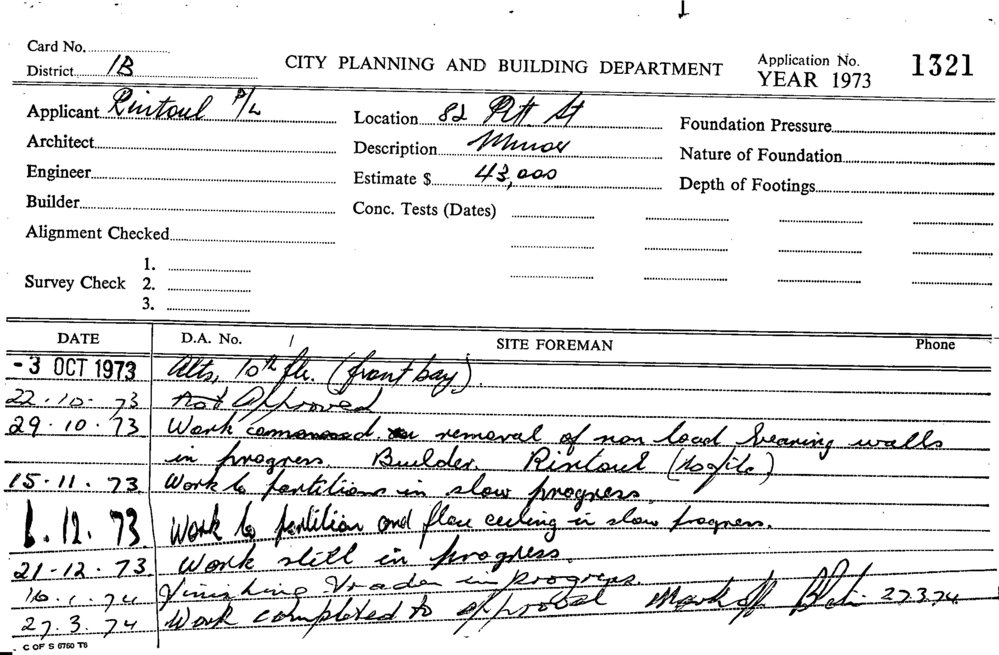 Card No.
District 1B
CITY PLANNING AND BUILDING DEPARTMENT
Application No.
YEAR 1973
1321
Applicant Rintoul P/L
Location 82 Pitt St
Foundation Pressure
Architect
Description Minor
Nature of Foundation
Engineer
Estimate $ 43,000
Depth of Footings
Builder
Conc. Tests (Dates)
Alignment Checked
Survey Check
1.
2.
3.
DATE D.A. No. / SITE FOREMAN Phone
-3 OCT 1973 Alts, 10th flr. (front bay).
22.10.73 Approved
29.10.73 Work removal of non load bearing walls
in progress. Builder. Rintoul
15.11.73 Work to partitions in slow progress.
1.12.73 Work to partition and ceiling in slow progress.
21-12-73 Work still in progress.
16.1.74 Finishing Trades in progress
27.3.74 Work completed to approval Mark off 27.3.74
C OF S 6760 T6